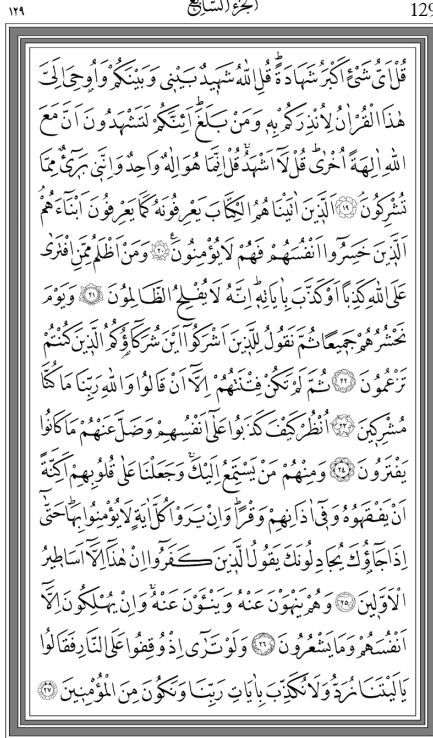 ١٢٩ الجزء السابع 129
قُلْ اَيُّ شَيْءٍ اَكْبَرُ شَهَادَةًۜ قُلِ اللّٰهُ شَه۪يدٌ بَيْن۪ي وَبَيْنَكُمْ وَاُو۫حِيَ اِلَيَّ
هٰذَا الْقُرْاٰنُ لِاُنْذِرَكُمْ بِه۪ وَمَنْ بَلَغَۜ اَئِنَّكُمْ لَتَشْهَدُونَ اَنَّ مَعَ
اللّٰهِ اٰلِهَةً اُخْرٰىۜ قُلْ لَٓا اَشْهَدُۚ قُلْ اِنَّمَا هُوَ اِلٰهٌ وَاحِدٌ وَاِنَّن۪ي بَر۪ٓيءٌ مِمَّا
تُشْرِكُونَۢ ﴿١٩﴾ اَلَّذ۪ينَ اٰتَيْنَاهُمُ الْكِتَابَ يَعْرِفُونَهُ كَمَا يَعْرِفُونَ اَبْنَٓاءَهُمْۢ
اَلَّذ۪ينَ خَسِرُٓوا اَنْفُسَهُمْ فَهُمْ لَا يُؤْمِنُونَ۟ ﴿٢٠﴾ وَمَنْ اَظْلَمُ مِمَّنِ افْتَرٰى
عَلَى اللّٰهِ كَذِبًا اَوْ كَذَّبَ بِاٰيَاتِه۪ۜ اِنَّهُ لَا يُفْلِحُ الظَّالِمُونَ ﴿٢١﴾ وَيَوْمَ
نَحْشُرُهُمْ جَم۪يعًا ثُمَّ نَقُولُ لِلَّذ۪ينَ اَشْرَكُٓوا اَيْنَ شُرَكَٓاؤُ۬كُمُ الَّذ۪ينَ كُنْتُمْ
تَزْعُمُونَ ﴿٢٢﴾ ثُمَّ لَمْ تَكُنْ فِتْنَتُهُمْ اِلَّٓا اَنْ قَالُوا وَاللّٰهِ رَبِّنَا مَا كُنَّا
مُشْرِك۪ينَ ﴿٢٣﴾ اُنْظُرْ كَيْفَ كَذَبُوا عَلٰٓى اَنْفُسِهِمْ وَضَلَّ عَنْهُمْ مَا كَانُوا
يَفْتَرُونَ ﴿٢٤﴾ وَمِنْهُمْ مَنْ يَسْتَمِعُ اِلَيْكَۚ وَجَعَلْنَا عَلٰى قُلُوبِهِمْ اَكِنَّةً
اَنْ يَفْقَهُوهُ وَف۪ٓي اٰذَانِهِمْ وَقْرًاۜ وَاِنْ يَرَوْا كُلَّ اٰيَةٍ لَا يُؤْمِنُوا بِهَاۜ حَتّٰٓى
اِذَا جَٓاؤُ۫كَ يُجَادِلُونَكَ يَقُولُ الَّذ۪ينَ كَفَرُٓوا اِنْ هٰذَٓا اِلَّٓا اَسَاط۪يرُ
الْاَوَّل۪ينَ ﴿٢٥﴾ وَهُمْ يَنْهَوْنَ عَنْهُ وَيَنْـَٔوْنَ عَنْهُۚ وَاِنْ يُهْلِكُونَ اِلَّٓا
اَنْفُسَهُمْ وَمَا يَشْعُرُونَ ﴿٢٦﴾ وَلَوْ تَرٰٓى اِذْ وُقِفُوا عَلَى النَّارِ فَقَالُوا
يَا لَيْتَنَا نُرَدُّ وَلَا نُكَذِّبَ بِاٰيَاتِ رَبِّنَا وَنَكُونَ مِنَ الْمُؤْمِن۪ينَ ﴿٢٧﴾